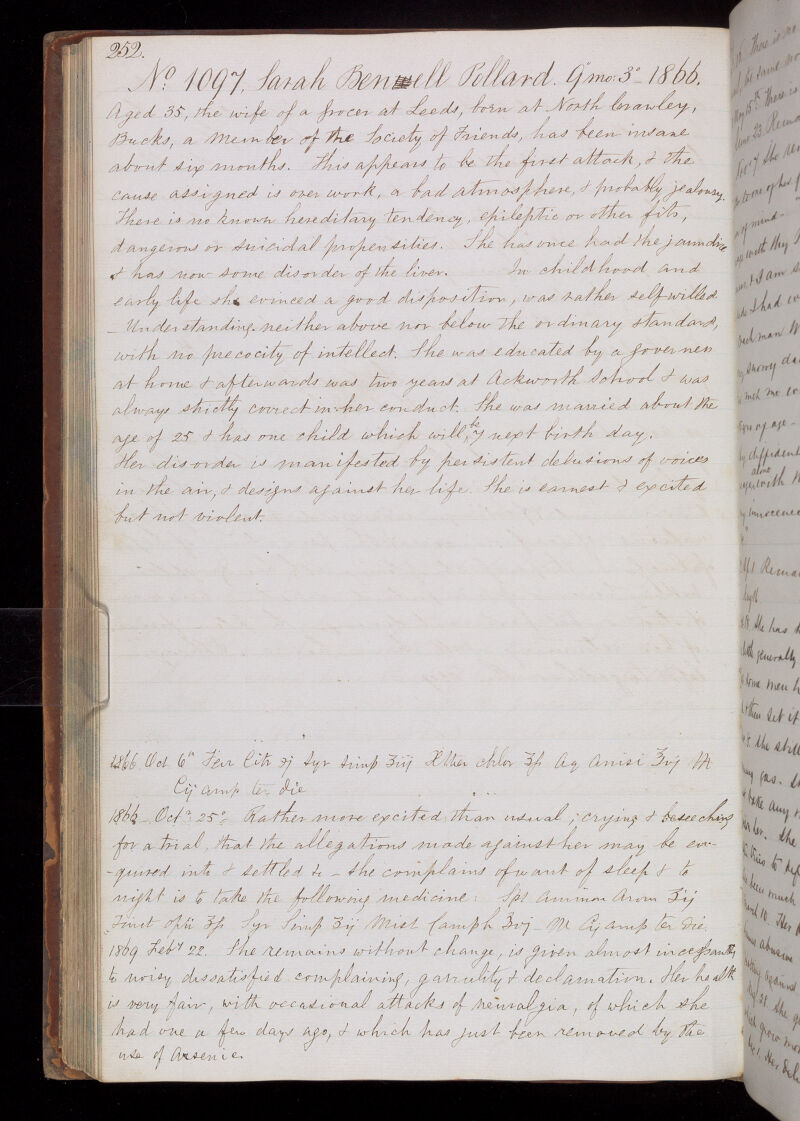 252.
No. 1097. Sarah Bennell Pollard. 9 mo: 3o- 1866.
Aged 35, the wife of a grocer at Leeds, born at North Crawley,
Bucks, a Member of the Society of Friends, has been insane
about six months. This appears to be the first attack, & the
cause assigned is over work, a bad atmosphere, & probably jealousy.
There is no known hereditary tendency, epileptic or other fits,
dangerous or suicidal propensities. She has once had the jaundice
& has now some disorder of the liver. In childhood and
early life she evinced a good disposition, was rather self-willed
- Understanding neither above nor below the ordinary standard,
with no precocity of intellect. She was educated by a governess
at home & afterwards was two years at Ackworth School & was
always strictly correct in her conduct. She was married about the
age of 25 & has one child which will be 7 next birth day.
Her disorder is manifested by persistent delusions of voices
in the air, & designs against her life. She is earnest & excited
but not violent.
1866 Oct 6th Ferr Citr Syr Simp ʒiij Æther chlor ʒſs Aq Anisi ℥vj M
Cij amp ter die
1866 Octr. 25o Rather more excited than usual; crying & beseeching
for a trial, that the allegations made against her may be en-
-quired into & settled &c - She complains of want of sleep & to
night is to take the following medicine: Spt Ammon Arom ʒij
Tinct opii ʒſs Syr Simp ʒij Mist Camph ℥vj - M Cij amp ter die.
1869 Feby 22. She remains without change, is given almost incessantly
to noisy dissatisfied complaining, garrulity & declamation. Her health
is very fair, with occasional attacks of neuralgia, of which she
had one a few days ago, & which has just been removed by the
use of Arsenic.